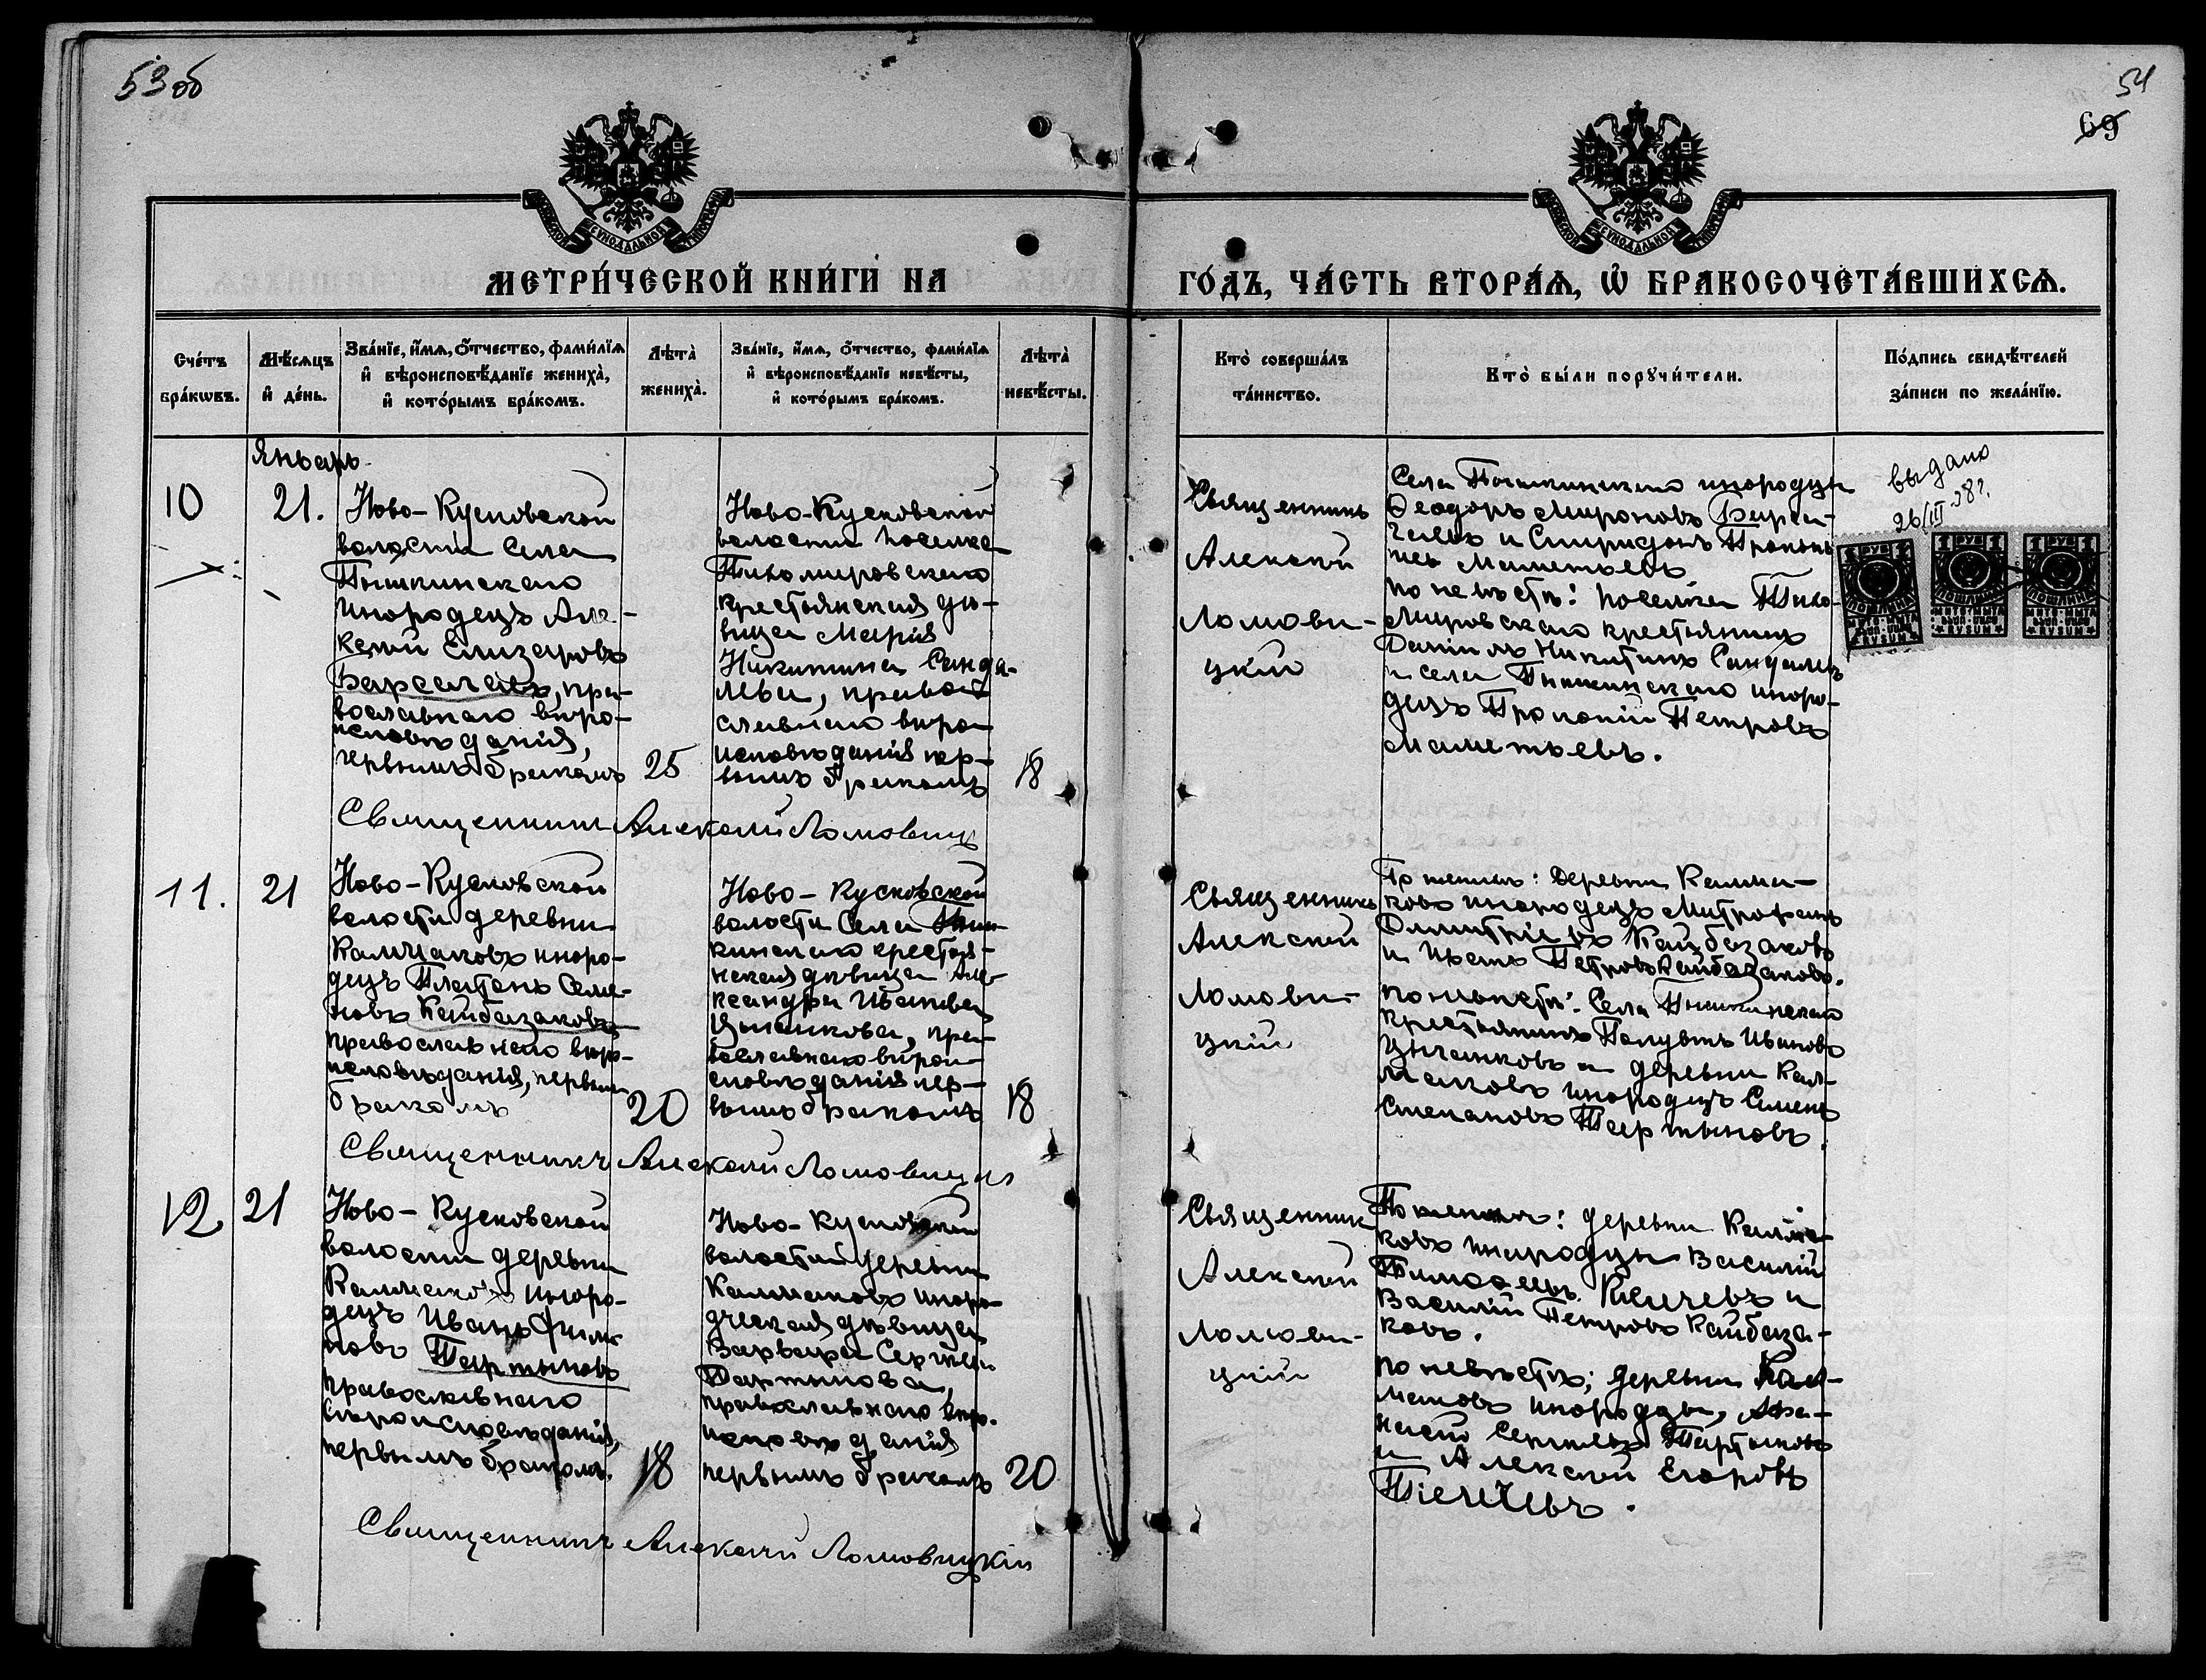 53 об
54
69
МЕТРИ́ЧЕСКОЙ КНИ́ГИ НА
ГО́ДЪ, ЧА́СТЬ ВТОРА́Я, Ѽ БРАКОСОЧЕТА́ВШИХСЯ.
Сче́тъ
бра́кѡвъ.
Мѣ́сяцъ
и҆ де́нь.
Зва́нїе, и҆́мя, ѻ҆́тчество, фами́лїя
и҆ вѣроисповѣ́данїе жениха̀,
и҆ кото́рымъ бра́комъ.
Лѣта̀
жениха̀.
Зва́нїе, и҆́мя, ѻ҆́тчество, фами́лїя
и҆ вѣроисповѣ́данїе невѣ́сты,
и҆ кото́рымъ бра́комъ.
Лѣта̀
невѣ́сты.
Кто̀ соверша́лъ
та́инство.
Кто̀ бы́ли порꙋчи́тели.
По́дпись свидѣ́телей
за́писи по жела́нїю.
Январь
10
21.
Ново-Кусковской
волости села
Пышкинскаго
инородецъ Але-
ксей Елизаровъ
пра-
вославнаго вѣро-
исповѣданія,
первымъ бракомъ
25
Ново-Кусковской
волости поселка
Тихомировскаго
крестьянская дѣ-
вица Марія
Никитина Санда-
лева, право-
славнаго вѣро
исповѣданія пер-
вымъ бракомъ
18
Священникъ
Алексѣй
Ломови-
цкій
Села Пышкинскаго инородцы
Ѳеодоръ Мироновъ
и Спиридонъ Прокопь
евъ Маметьевъ
по невѣстѣ: поселка Тихо-
мировскаго крестьянинъ
Даніилъ Никитинъ Сандалевъ
и села Пышкинскаго иноро-
децъ Прокопій Петровъ
Маметьевъ.
выдано
26/III 38 г.
1 РУБ 1
ПОШЛИНА
МИТО·МЫТА
RYSUM
1 РУБ 1
ПОШЛИНА
МИТО·МЫТА
RYSUM
1 РУБ 1
ПОШЛИНА
МИТО·МЫТА
RYSUM
Священникъ Алексѣй Ломовицк
11.
21
Ново-Кусковской
волости деревни
Калмаковъ иноро-
децъ Платонъ Семе-
новъ Кайбазаковъ
православнаго вѣро-
исповѣданія, первымъ
бракомъ
20
Ново-Кусковской
волости Села Пыш-
кинскаго крестья-
нская дѣвица Але-
ксандра Иванова
Цыганкова, пра-
вославнаго вѣрои-
сповѣданія пер-
вымъ бракомъ
18
Священникъ
Алексѣй
Ломови-
цкій
По жениху: Деревни Калма-
ковъ инородецъ Митрофанъ
Димитріевъ Кайбазаковъ
и Иванъ Петровъ Кайбазаковъ.
по невѣстѣ: Села Пышкинскаго
крестьянинъ Иванов
Цыганковъ и деревни Кал-
маковъ инородецъ Семенъ
Степановъ Тартыновъ.
Священникъ Алексѣй Ломовицкій
12
21
Ново-Кусковской
волости деревни
Калмаковъ иноро-
децъ Иванъ
Тартыновъ
православнаго
вѣроисповѣданія,
первымъ бракомъ.
18
Ново-Кусковской
волости деревни
Калмаковъ иноро-
дческая дѣвица
Варвара Сергѣева
Тартынова,
православнаго вѣро-
исповѣданія
первымъ бракомъ
20
Священникъ
Алексѣй
Ломови-
цкій
По жениху: деревни Калма-
ковъ инородцы Василій
и
Василій Петровъ Кайбаза-
ковъ.
по невѣстѣ; деревни Кал-
маковъ инородцы, Афа-
насій Сергѣевъ Тартыновъ
и Алексѣй Егоровъ
Священникъ Алексѣй Ломовицкій